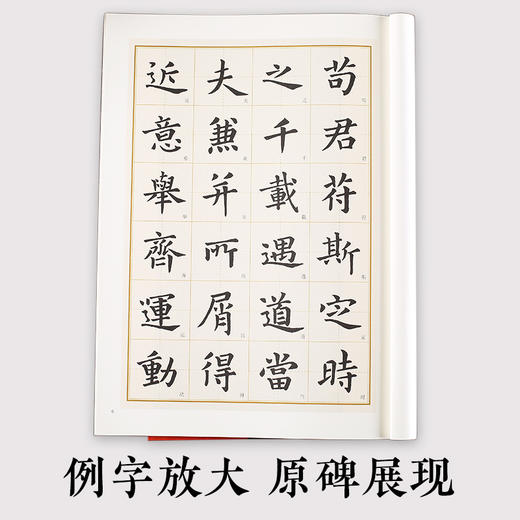 苟君苻斯定時
之千載遇道當
夫兼并所屑得
近意舉齊運動
例字放大 原碑展现